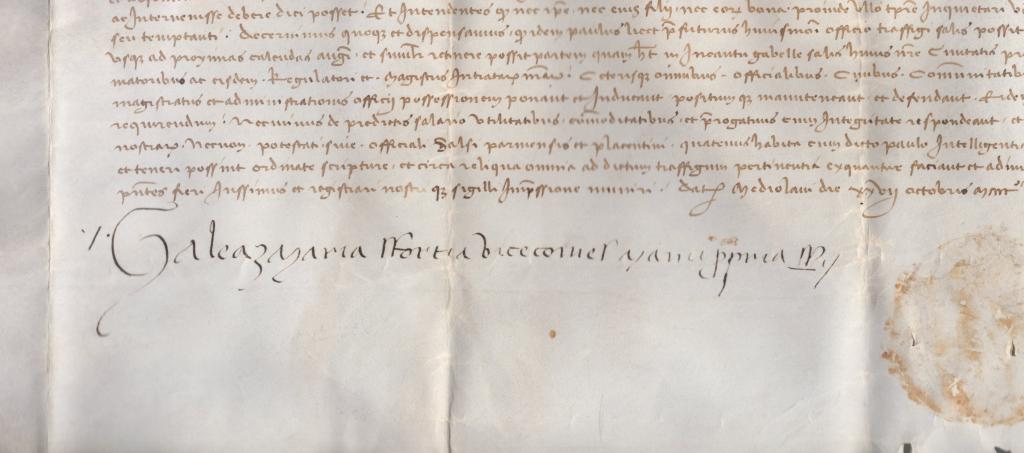 ac Intervenisse debere dici posset. Et Intendentes qz nec ipse nec eius filij nec eorz bona proinde Ullo tpre Inquietari
seu temptauri: decernimus quoqz et dispensamus, qz idem paulus licet pfuturus huiusmoi officio traffigi salis possit
Usqz ad proximas calendas augti et simili retinere possit partem quam ht in Incantu gabelle salis huius nre Ciuitatis
matoribus ac eisdem Regulatori et Magistris Intratarz. Ceterisqz omnibus officialibus Ciuibus
magistratus et administrationis officij possessionem ponant et Inducant positumqz manuteneant et defendant
requirendum: Necminus de predictis salario Utilitatibus comoditatibus et prerogatiuis cum Integritate respondeant et
nostrarz. Necnon potestati siue officiali Salsi parmensis et placentini quatenus habita cum dicto paulo Intelligentia
et teneri possint ordinate scripture et circa reliqua omnia ad dictum traffigum pertinentia faciant et
pntes fieri Iussimus et registrari nostri qz sigilli Impssione muniri. Dat Mediolani die xxvij octobris
Galeaz Maria Sfortia Vicecomes Manu ppria